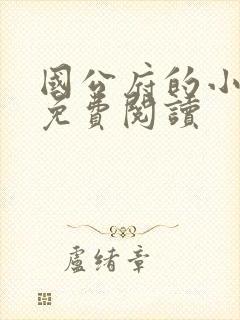 國公府的小
免費閱讀
盧緒章